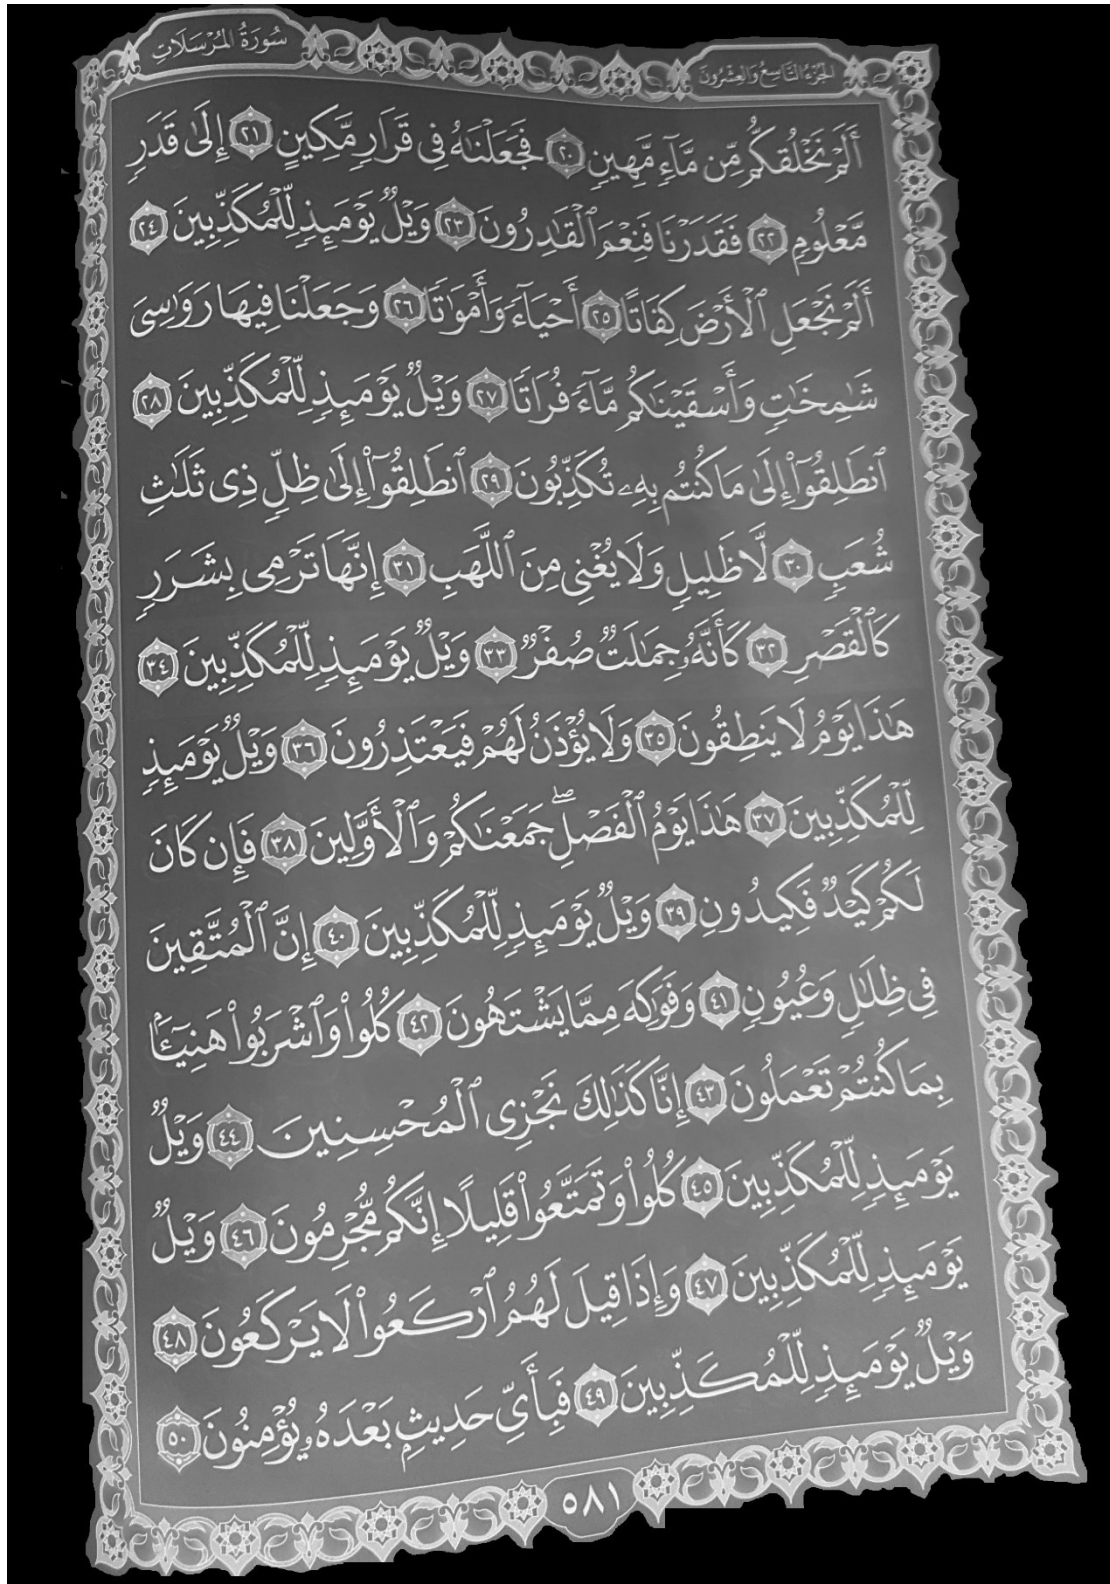 سُورَةُ المُرْسَلَاتِ
الجُزْءُ التَّاسِعُ وَالعِشْرُونَ
أَلَمْ نَخْلُقكُّم مِّن مَّآءٖ مَّهِينٖ ٢٠ فَجَعَلْنَٰهُ فِى قَرَارٖ مَّكِينٍ ٢١ إِلَىٰ قَدَرٖ
مَّعْلُومٖ ٢٢ فَقَدَرْنَا فَنِعْمَ ٱلْقَٰدِرُونَ ٢٣ وَيْلٌ يَوْمَئِذٖ لِّلْمُكَذِّبِينَ ٢٤
أَلَمْ نَجْعَلِ ٱلْأَرْضَ كِفَاتًا ٢٥ أَحْيَآءٗ وَأَمْوَٰتٗا ٢٦ وَجَعَلْنَا فِيهَا رَوَٰسِىَ
شَٰمِخَٰتٖ وَأَسْقَيْنَٰكُم مَّآءٗ فُرَاتٗا ٢٧ وَيْلٌ يَوْمَئِذٖ لِّلْمُكَذِّبِينَ ٢٨
ٱنطَلِقُوٓا۟ إِلَىٰ مَا كُنتُم بِهِۦ تُكَذِّبُونَ ٢٩ ٱنطَلِقُوٓا۟ إِلَىٰ ظِلّٖ ذِى ثَلَٰثِ
شُعَبٖ ٣٠ لَّا ظَلِيلٖ وَلَا يُغْنِى مِنَ ٱللَّهَبِ ٣١ إِنَّهَا تَرْمِى بِشَرَرٖ
كَٱلْقَصْرِ ٣٢ كَأَنَّهُۥ جِمَٰلَتٌ صُفْرٌ ٣٣ وَيْلٌ يَوْمَئِذٖ لِّلْمُكَذِّبِينَ ٣٤
هَٰذَا يَوْمُ لَا يَنطِقُونَ ٣٥ وَلَا يُؤْذَنُ لَهُمْ فَيَعْتَذِرُونَ ٣٦ وَيْلٌ يَوْمَئِذٖ
لِّلْمُكَذِّبِينَ ٣٧ هَٰذَا يَوْمُ ٱلْفَصْلِۖ جَمَعْنَٰكُمْ وَٱلْأَوَّلِينَ ٣٨ فَإِن كَانَ
لَكُمْ كَيْدٌ فَكِيدُونِ ٣٩ وَيْلٌ يَوْمَئِذٖ لِّلْمُكَذِّبِينَ ٤٠ إِنَّ ٱلْمُتَّقِينَ
فِى ظِلَٰلٖ وَعُيُونٖ ٤١ وَفَوَٰكِهَ مِمَّا يَشْتَهُونَ ٤٢ كُلُوا۟ وَٱشْرَبُوا۟ هَنِيٓـَٔۢا
بِمَا كُنتُمْ تَعْمَلُونَ ٤٣ إِنَّا كَذَٰلِكَ نَجْزِى ٱلْمُحْسِنِينَ ٤٤ وَيْلٌ
يَوْمَئِذٖ لِّلْمُكَذِّبِينَ ٤٥ كُلُوا۟ وَتَمَتَّعُوا۟ قَلِيلًا إِنَّكُم مُّجْرِمُونَ ٤٦ وَيْلٌ
يَوْمَئِذٖ لِّلْمُكَذِّبِينَ ٤٧ وَإِذَا قِيلَ لَهُمُ ٱرْكَعُوا۟ لَا يَرْكَعُونَ ٤٨
وَيْلٌ يَوْمَئِذٖ لِّلْمُكَذِّبِينَ ٤٩ فَبِأَىِّ حَدِيثٍۭ بَعْدَهُۥ يُؤْمِنُونَ ٥٠
٥٨١